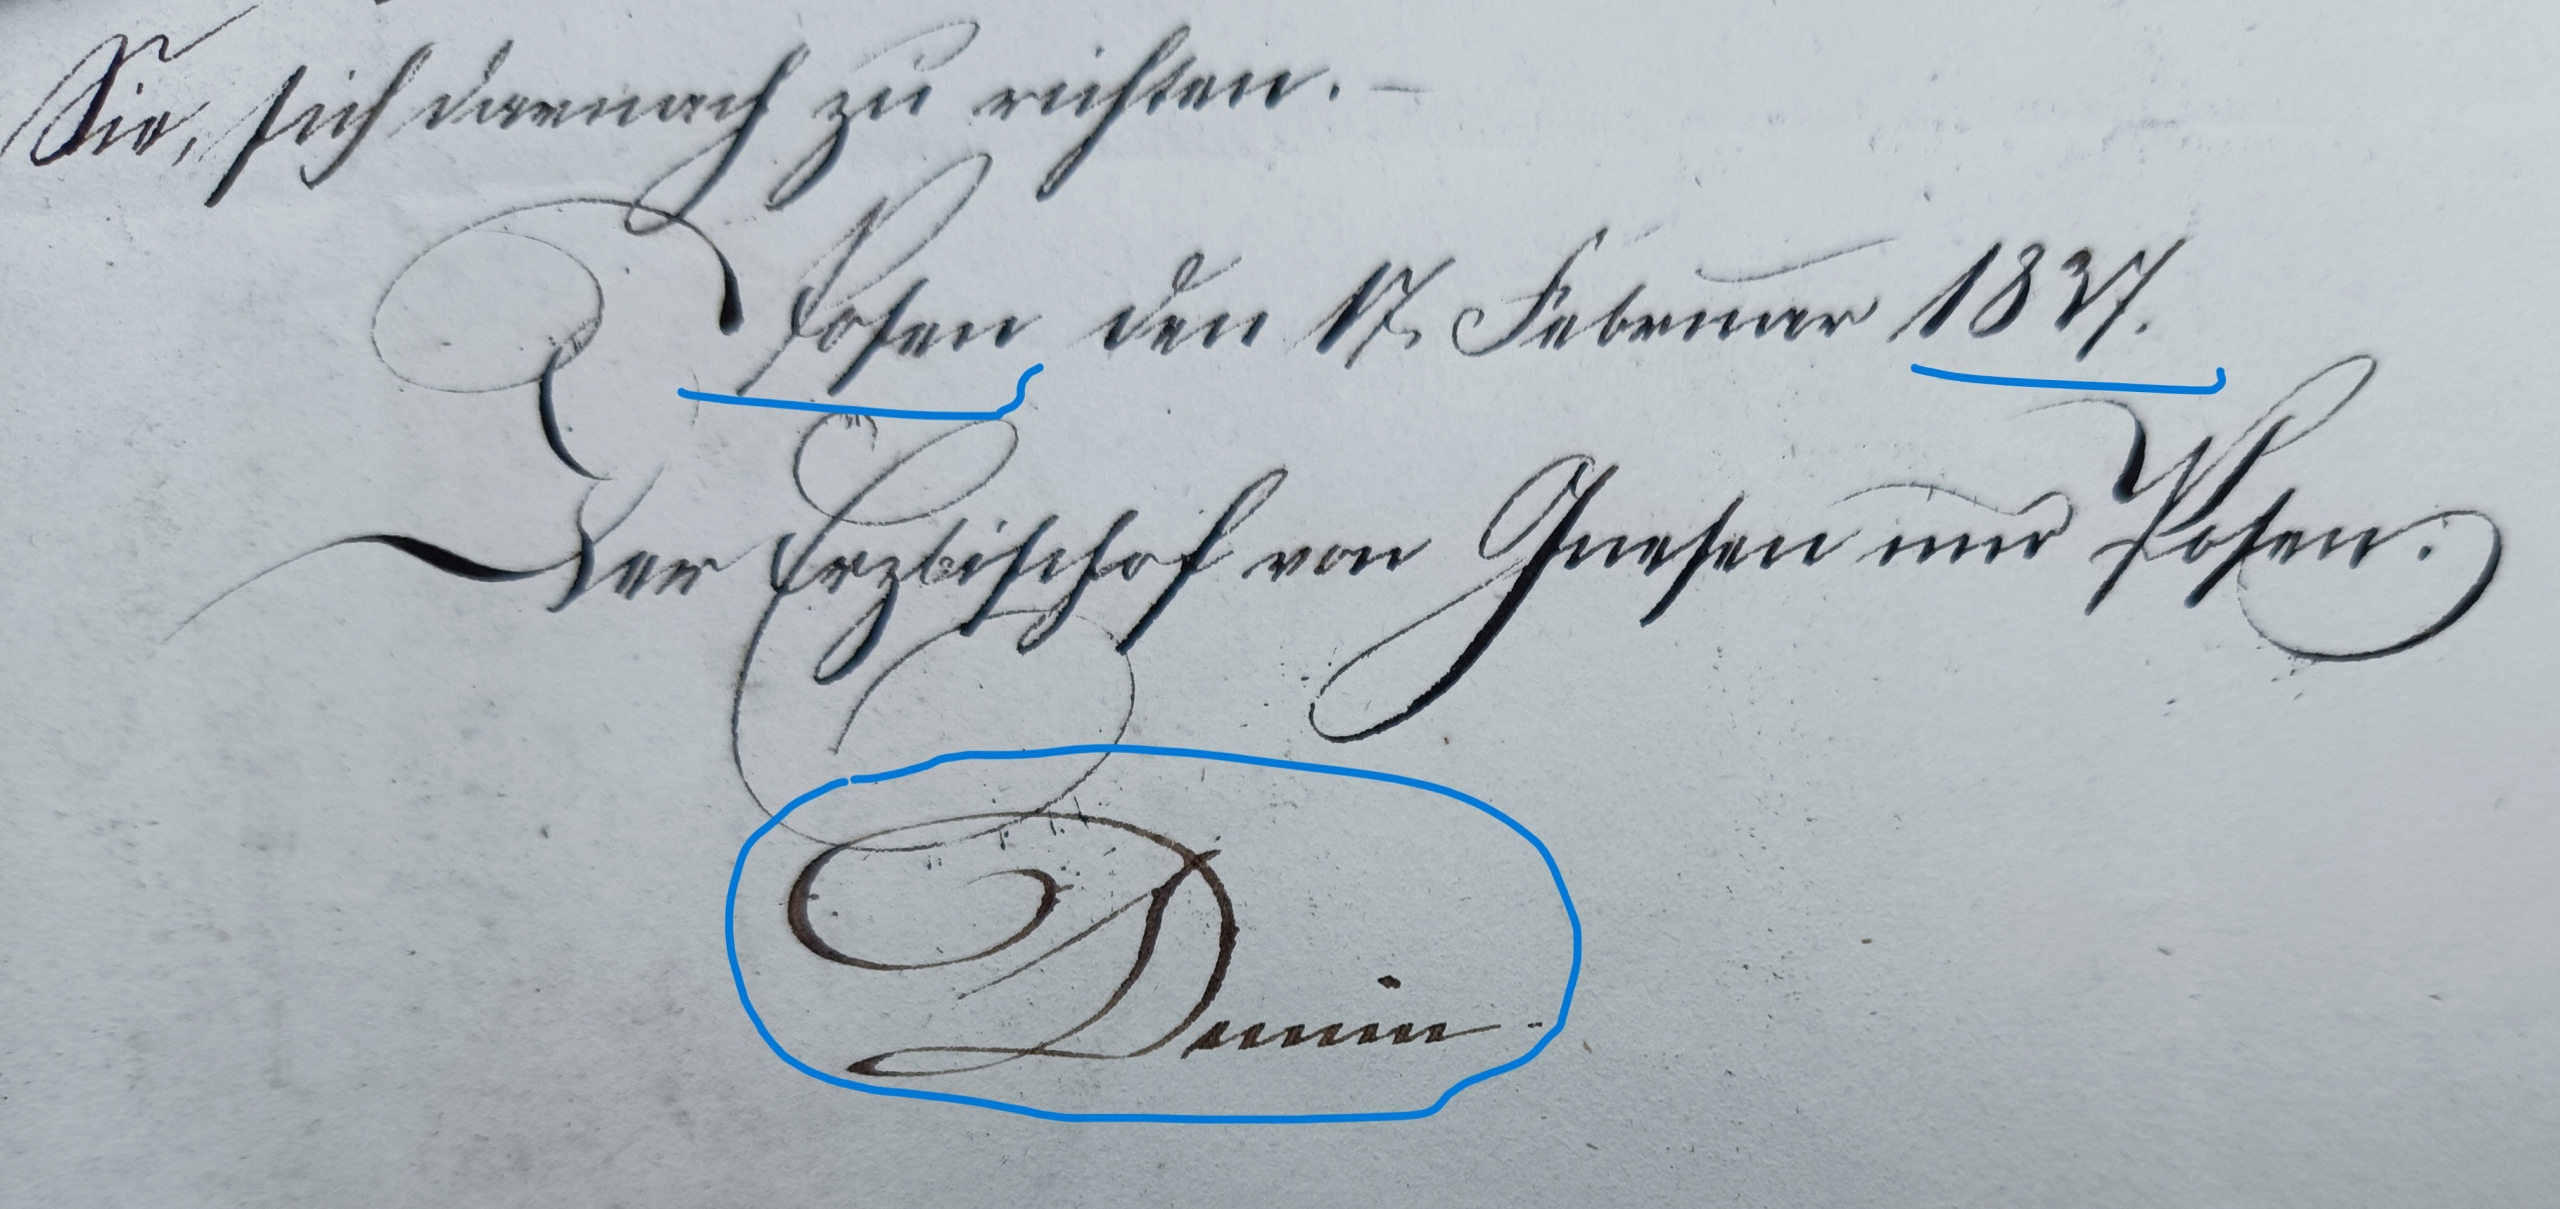 Sie, sich darnach zu richten. —
Posen den 17. Februar 1837.
Der Erzbischof von Gnesen und Posen.
Dunin